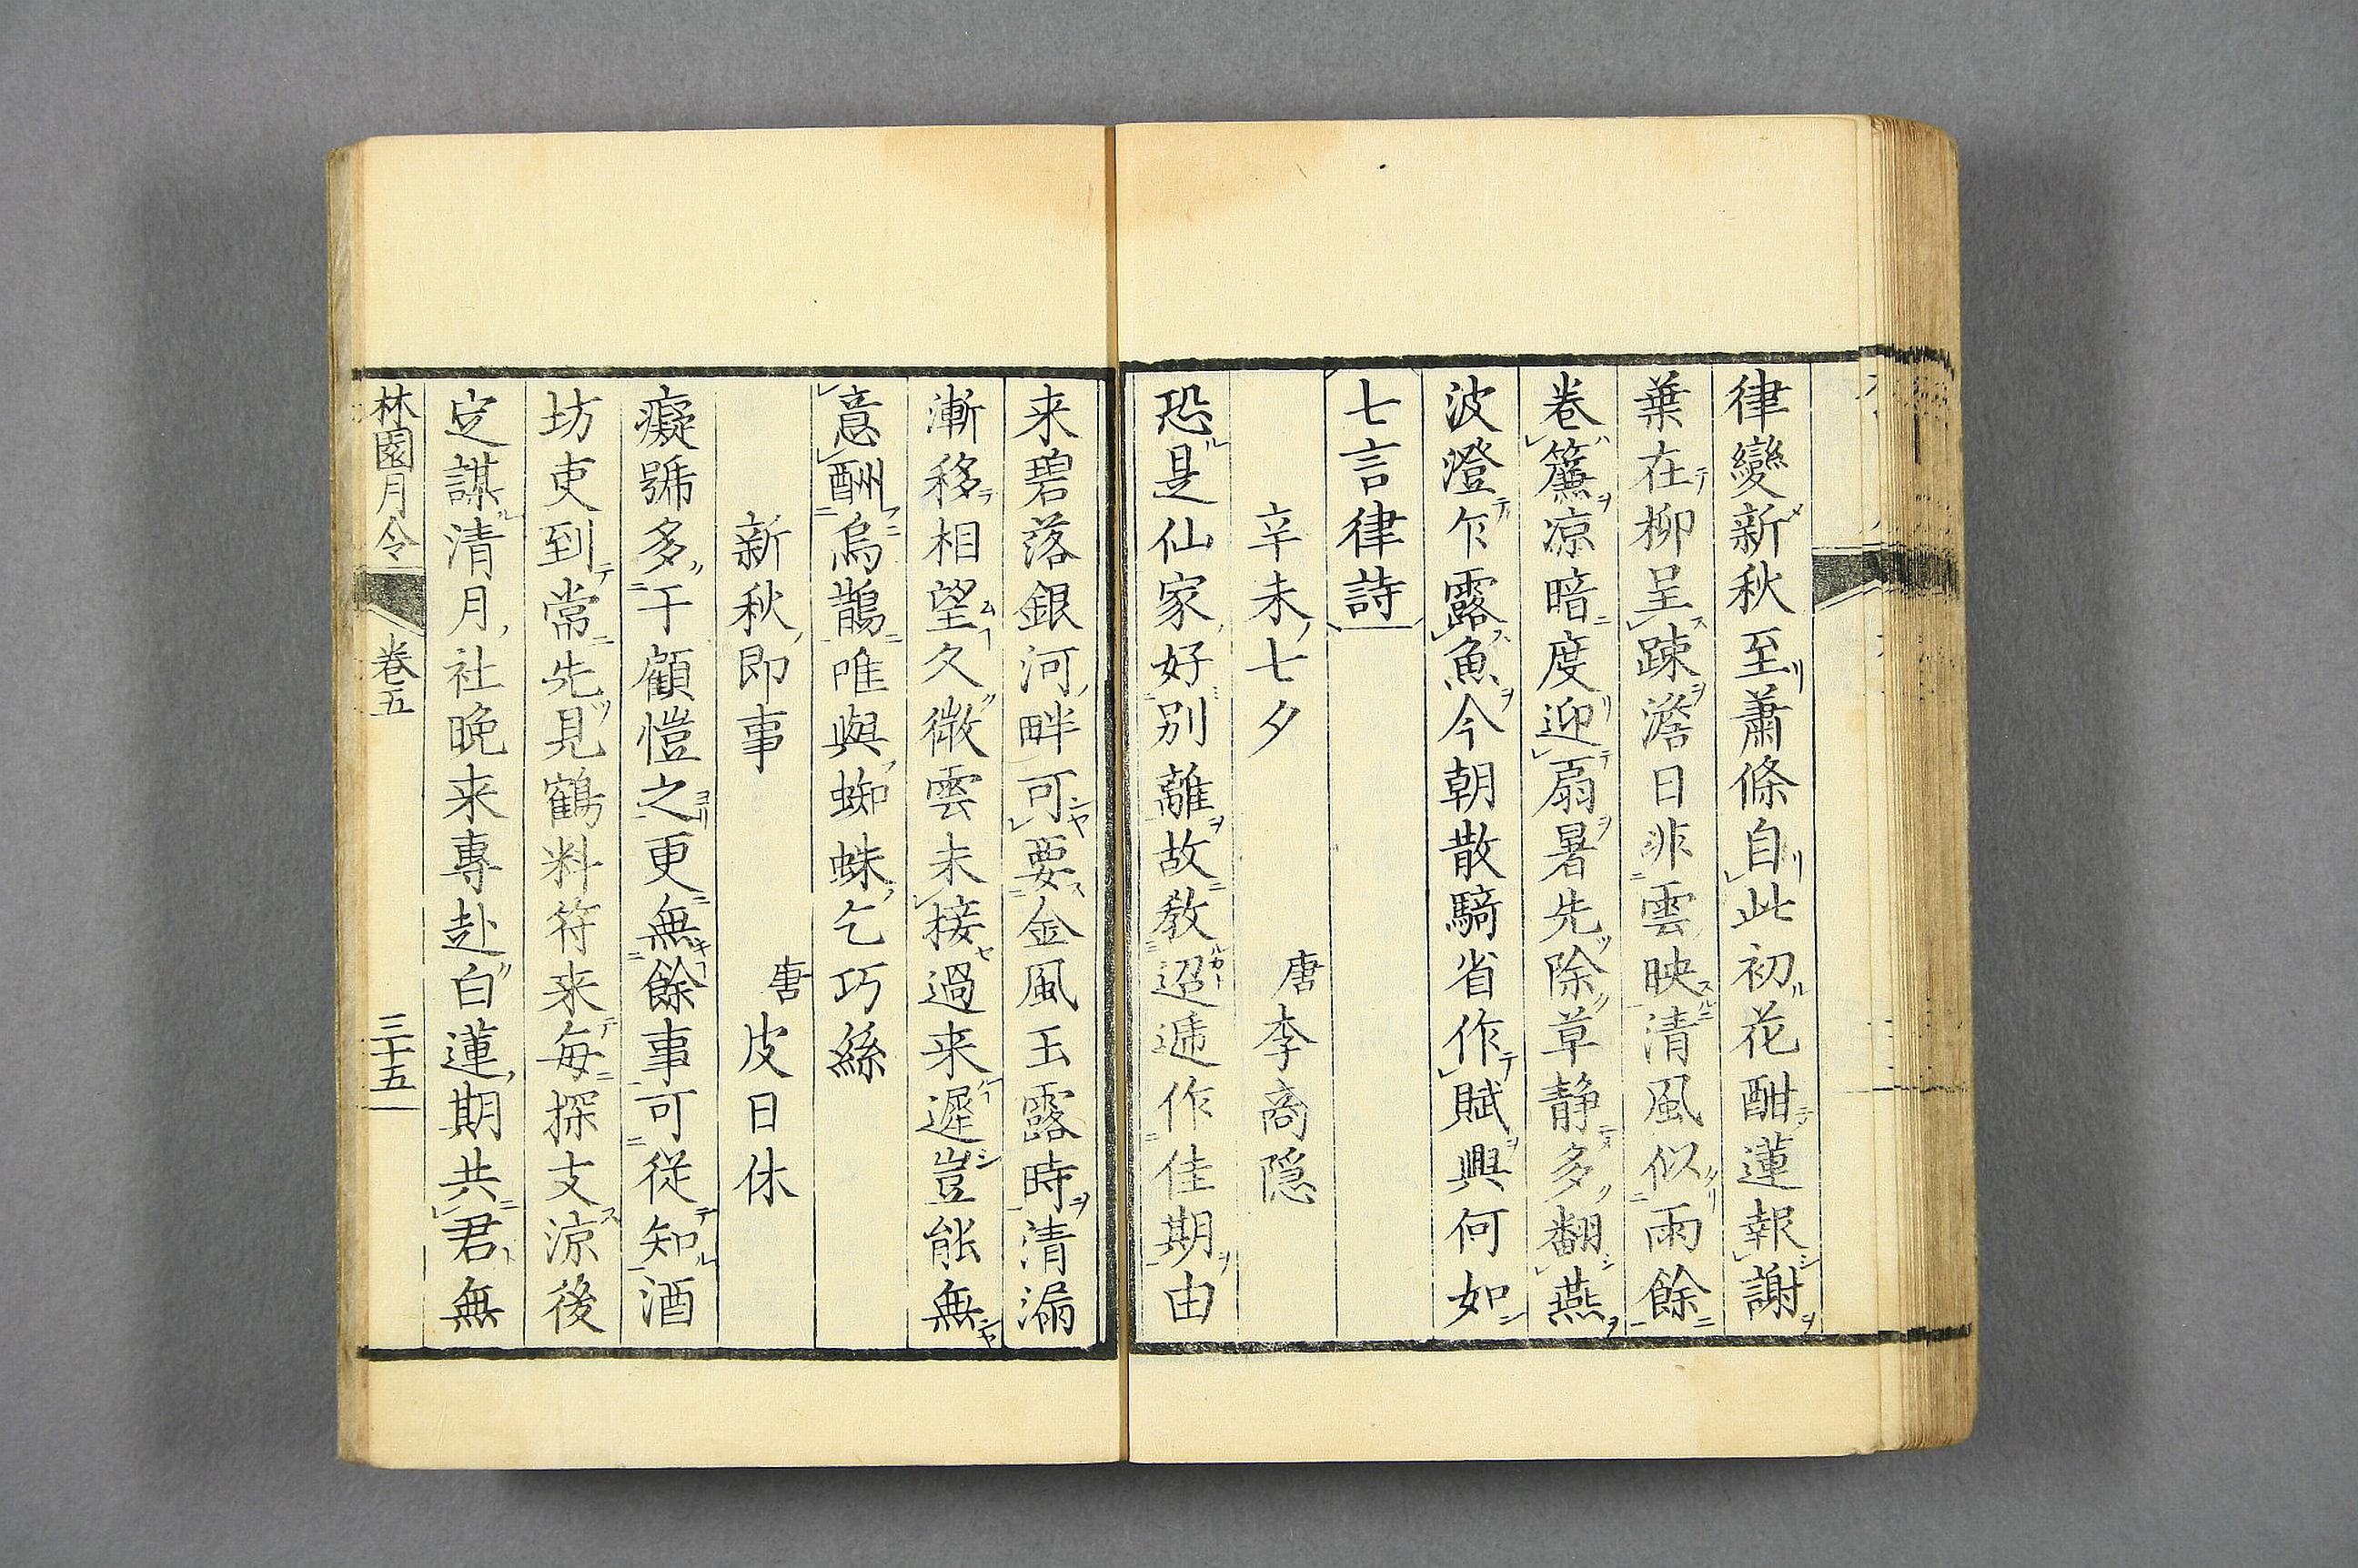 律變新秋至蕭條自此初花酣蓮報謝
葉在柳呈踈澹日非雲映清風似雨餘
卷簾凉暗度迎扇暑先除草静多翻燕
波澄乍露魚今朝散騎省作賦興何如
七言律詩
辛未七夕 唐 李商隠
恐是仙家好别離故教迢遞作佳期由
来碧落銀河畔可要金風玉露時清漏
漸移相望久微雲未接過来遲豈能無
意酬烏鵲唯與蜘蛛乞巧絲
新秋即事 唐 皮日休
癡號多于顧愷之更無餘事可從知酒
坊吏到常先見鶴料符来每探支涼後
定謀清月社晩来專赴白蓮期共君無
林園月令 卷五 三十五